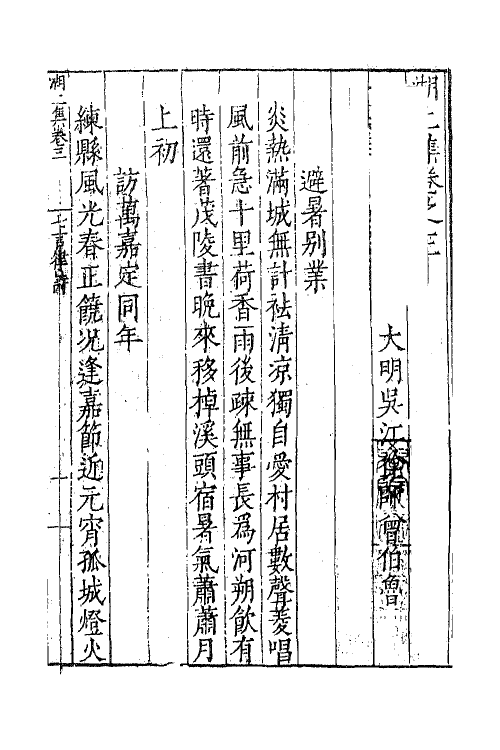 湖上集卷之三
大明吳江徐師曾伯魯
避暑别業
炎熱滿城無計袪清凉獨自愛村居數聲菱唱
風前急十里荷香雨後疎無事長爲河朔飲有
時還著茂陵書晚來移棹溪頭宿暑氣蕭蕭月
上初
訪萬嘉定同年
練縣風光春正饒况逢嘉節近元宵孤城燈火
湖上集卷三
七言律詩